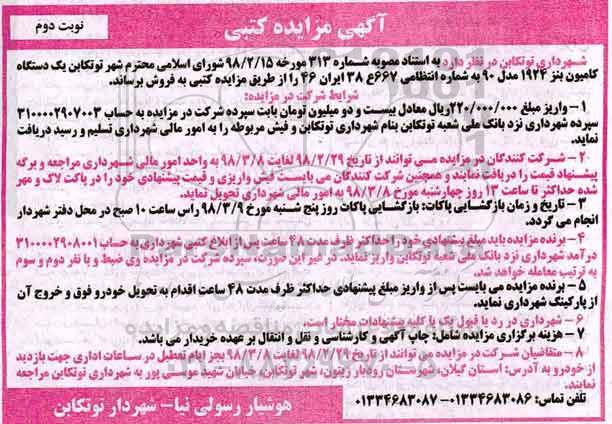 آگهی مزایده کتبی
نوبت دوم
شهرداری توتکابن در نظر دارد به استناد مصوبه شماره ۳۱۳ مورخه ۹۸/۲/۱۵ شورای اسلامی محترم شهر توتکابن یک دستگاه
کامیون بنز ۱۹۲۴ مدل ۹۰ به شماره انتظامی ۶۶۷ع ۳۸ ایران ۴۶ را از طریق مزایده کتبی به فروش برساند.
شرایط شرکت در مزایده:
۱- واریز مبلغ ۲۲۰/۰۰۰/۰۰۰ریال معادل بیست و دو میلیون تومان بابت سپرده شرکت در مزایده به حساب ۳۱۰۰۰۰۲۹۰۷۰۰۳
سپرده شهرداری نزد بانک ملی شعبه توتکابن بنام شهرداری توتکابن و فیش مربوطه را به امور مالی شهرداری تسلیم و رسید دریافت
نماید.
۲- شرکت کنندگان در مزایده می توانند از تاریخ ۹۸/۲/۲۹ لغایت ۹۸/۳/۸ به واحد امور مالی شهرداری مراجعه و برگه
پیشنهاد قیمت را دریافت نمایند و همچنین شرکت کنندگان می بایست فیش واریزی و قیمت پیشنهادی خود را در پاکت لاک و مهر
شده حداکثر تا ساعت ۱۳ روز چهارشنبه مورخ ۹۸/۳/۸ به امور مالی شهرداری تحویل نماید.
۳- تاریخ و زمان بازگشایی پاکات: بازگشایی پاکات روز پنج شنبه مورخ ۹۸/۳/۹ راس ساعت ۱۰ صبح در محل دفتر شهردار
انجام می گردد.
۴- برنده مزایده باید مبلغ پیشنهادی خود را حداکثر ظرف مدت ۴۸ ساعت پس از ابلاغ کتبی شهرداری به حساب ۳۱۰۰۰۰۲۹۰۸۰۰۱
درآمد شهرداری نزد بانک ملی شعبه توتکابن واریز نماید. در غیر این صورت، سپرده شرکت در مزایده وی ضبط و با نفر دوم و سوم
به ترتیب معامله خواهد شد.
۵- برنده مزایده می بایست پس از واریز مبلغ پیشنهادی حداکثر ظرف مدت ۴۸ ساعت اقدام به تحویل خودرو فوق و خروج آن
از پارکینگ شهرداری نماید.
۶- شهرداری در رد یا قبول یک یا کلیه پیشنهادات مختار است.
۷- هزینه برگزاری مزایده شامل: چاپ آگهی و کارشناسی و نقل و انتقال بر عهده خریدار می باشد.
۸- متقاضیان شرکت در مزایده می توانند از تاریخ ۹۸/۲/۲۹ لغایت ۹۸/۳/۸ بجز ایام تعطیل در ساعات اداری جهت بازدید
از خودرو به آدرس: استان گیلان، شهرستان رودبار زیتون، شهر توتکابن، خیابان شهید موسی پور به شهرداری توتکابن مراجعه
نمایند.
تلفن تماس: ۰۱۳۳۴۶۸۳۰۸۶-۰۱۳۳۴۶۸۳۰۸۷
هوشیار رسولی نیا- شهردار توتکابن